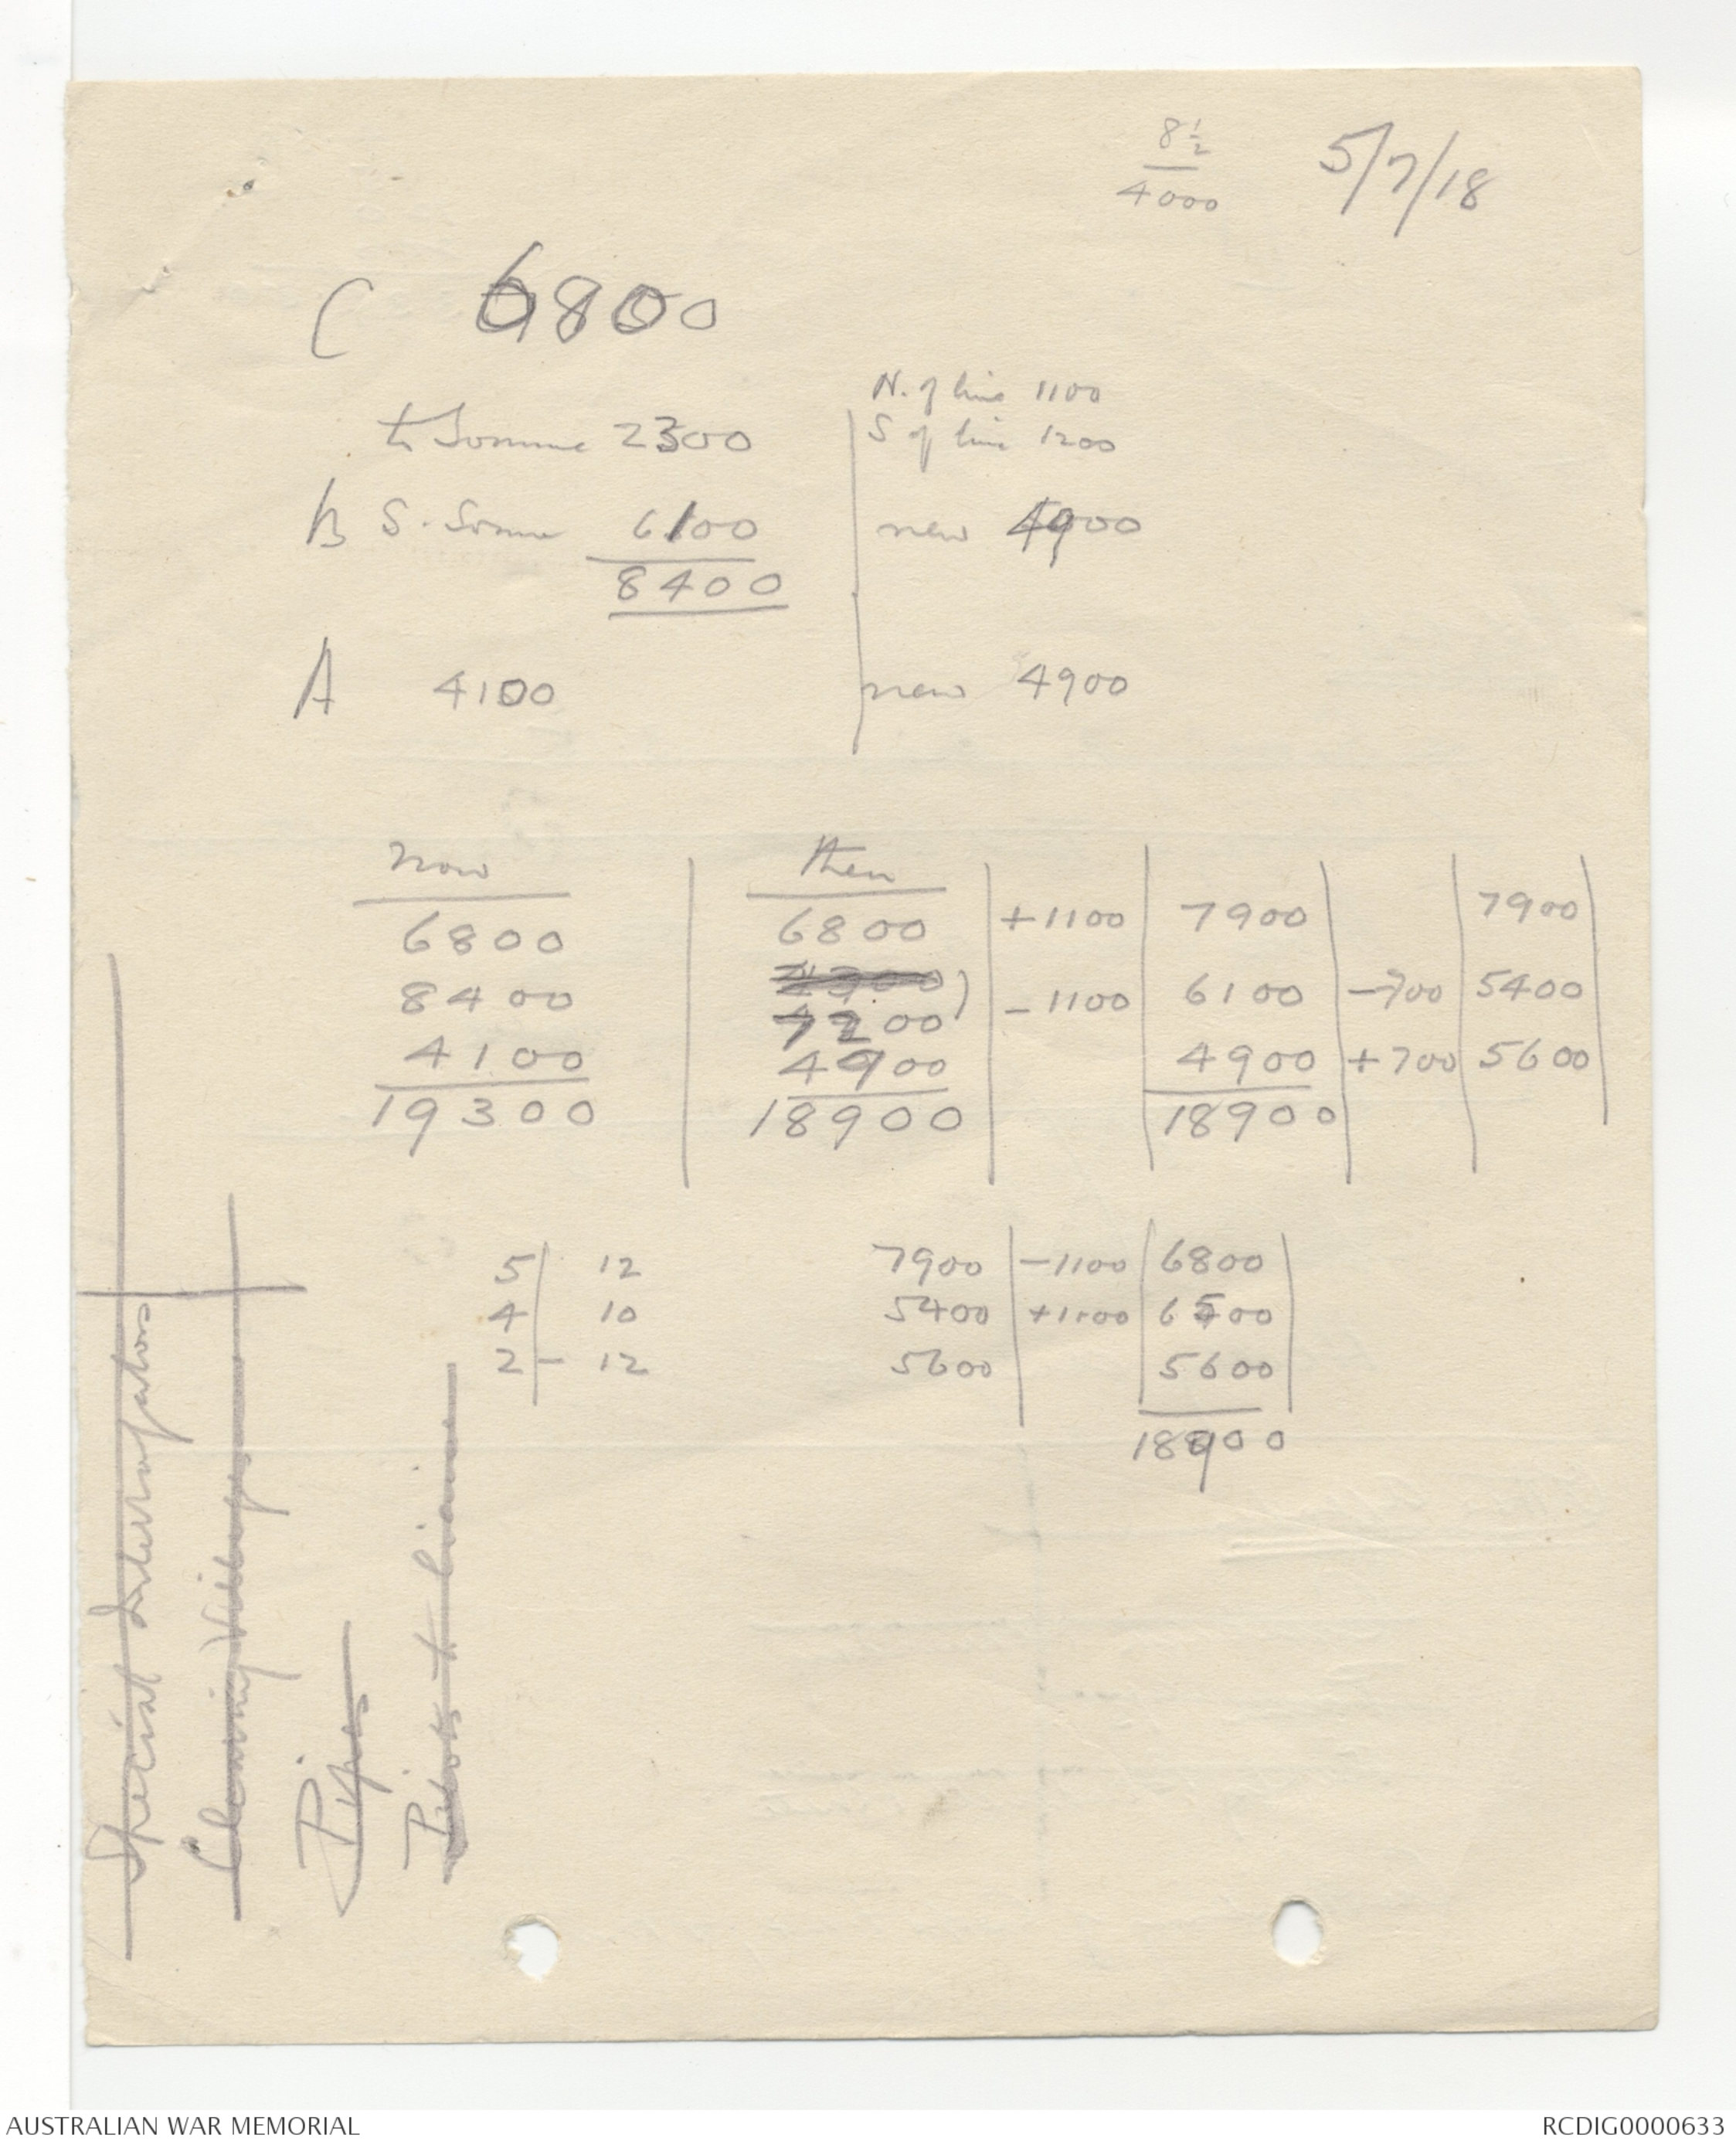 8½ 5/7/18
4000
C 6800
N. of line 1100
to Somme 2300 S of line 1200
B S. Somme 6100 new 4900
8400
A 4100 new 4900
Now Then
6800 6800 +1100 7900 7900
8400 7200 -1100 6100 -700 5400
4100 4900 4900 +700 5600
19300 18900 18900
5 12 7900 -1100 6800
4 10 5400 +1100 6500
2 - 12 5600 5600
18900
Special Interrogations
Cleaning Villages
Pipes
AUSTRALIAN WAR MEMORIAL RCDIG0000633